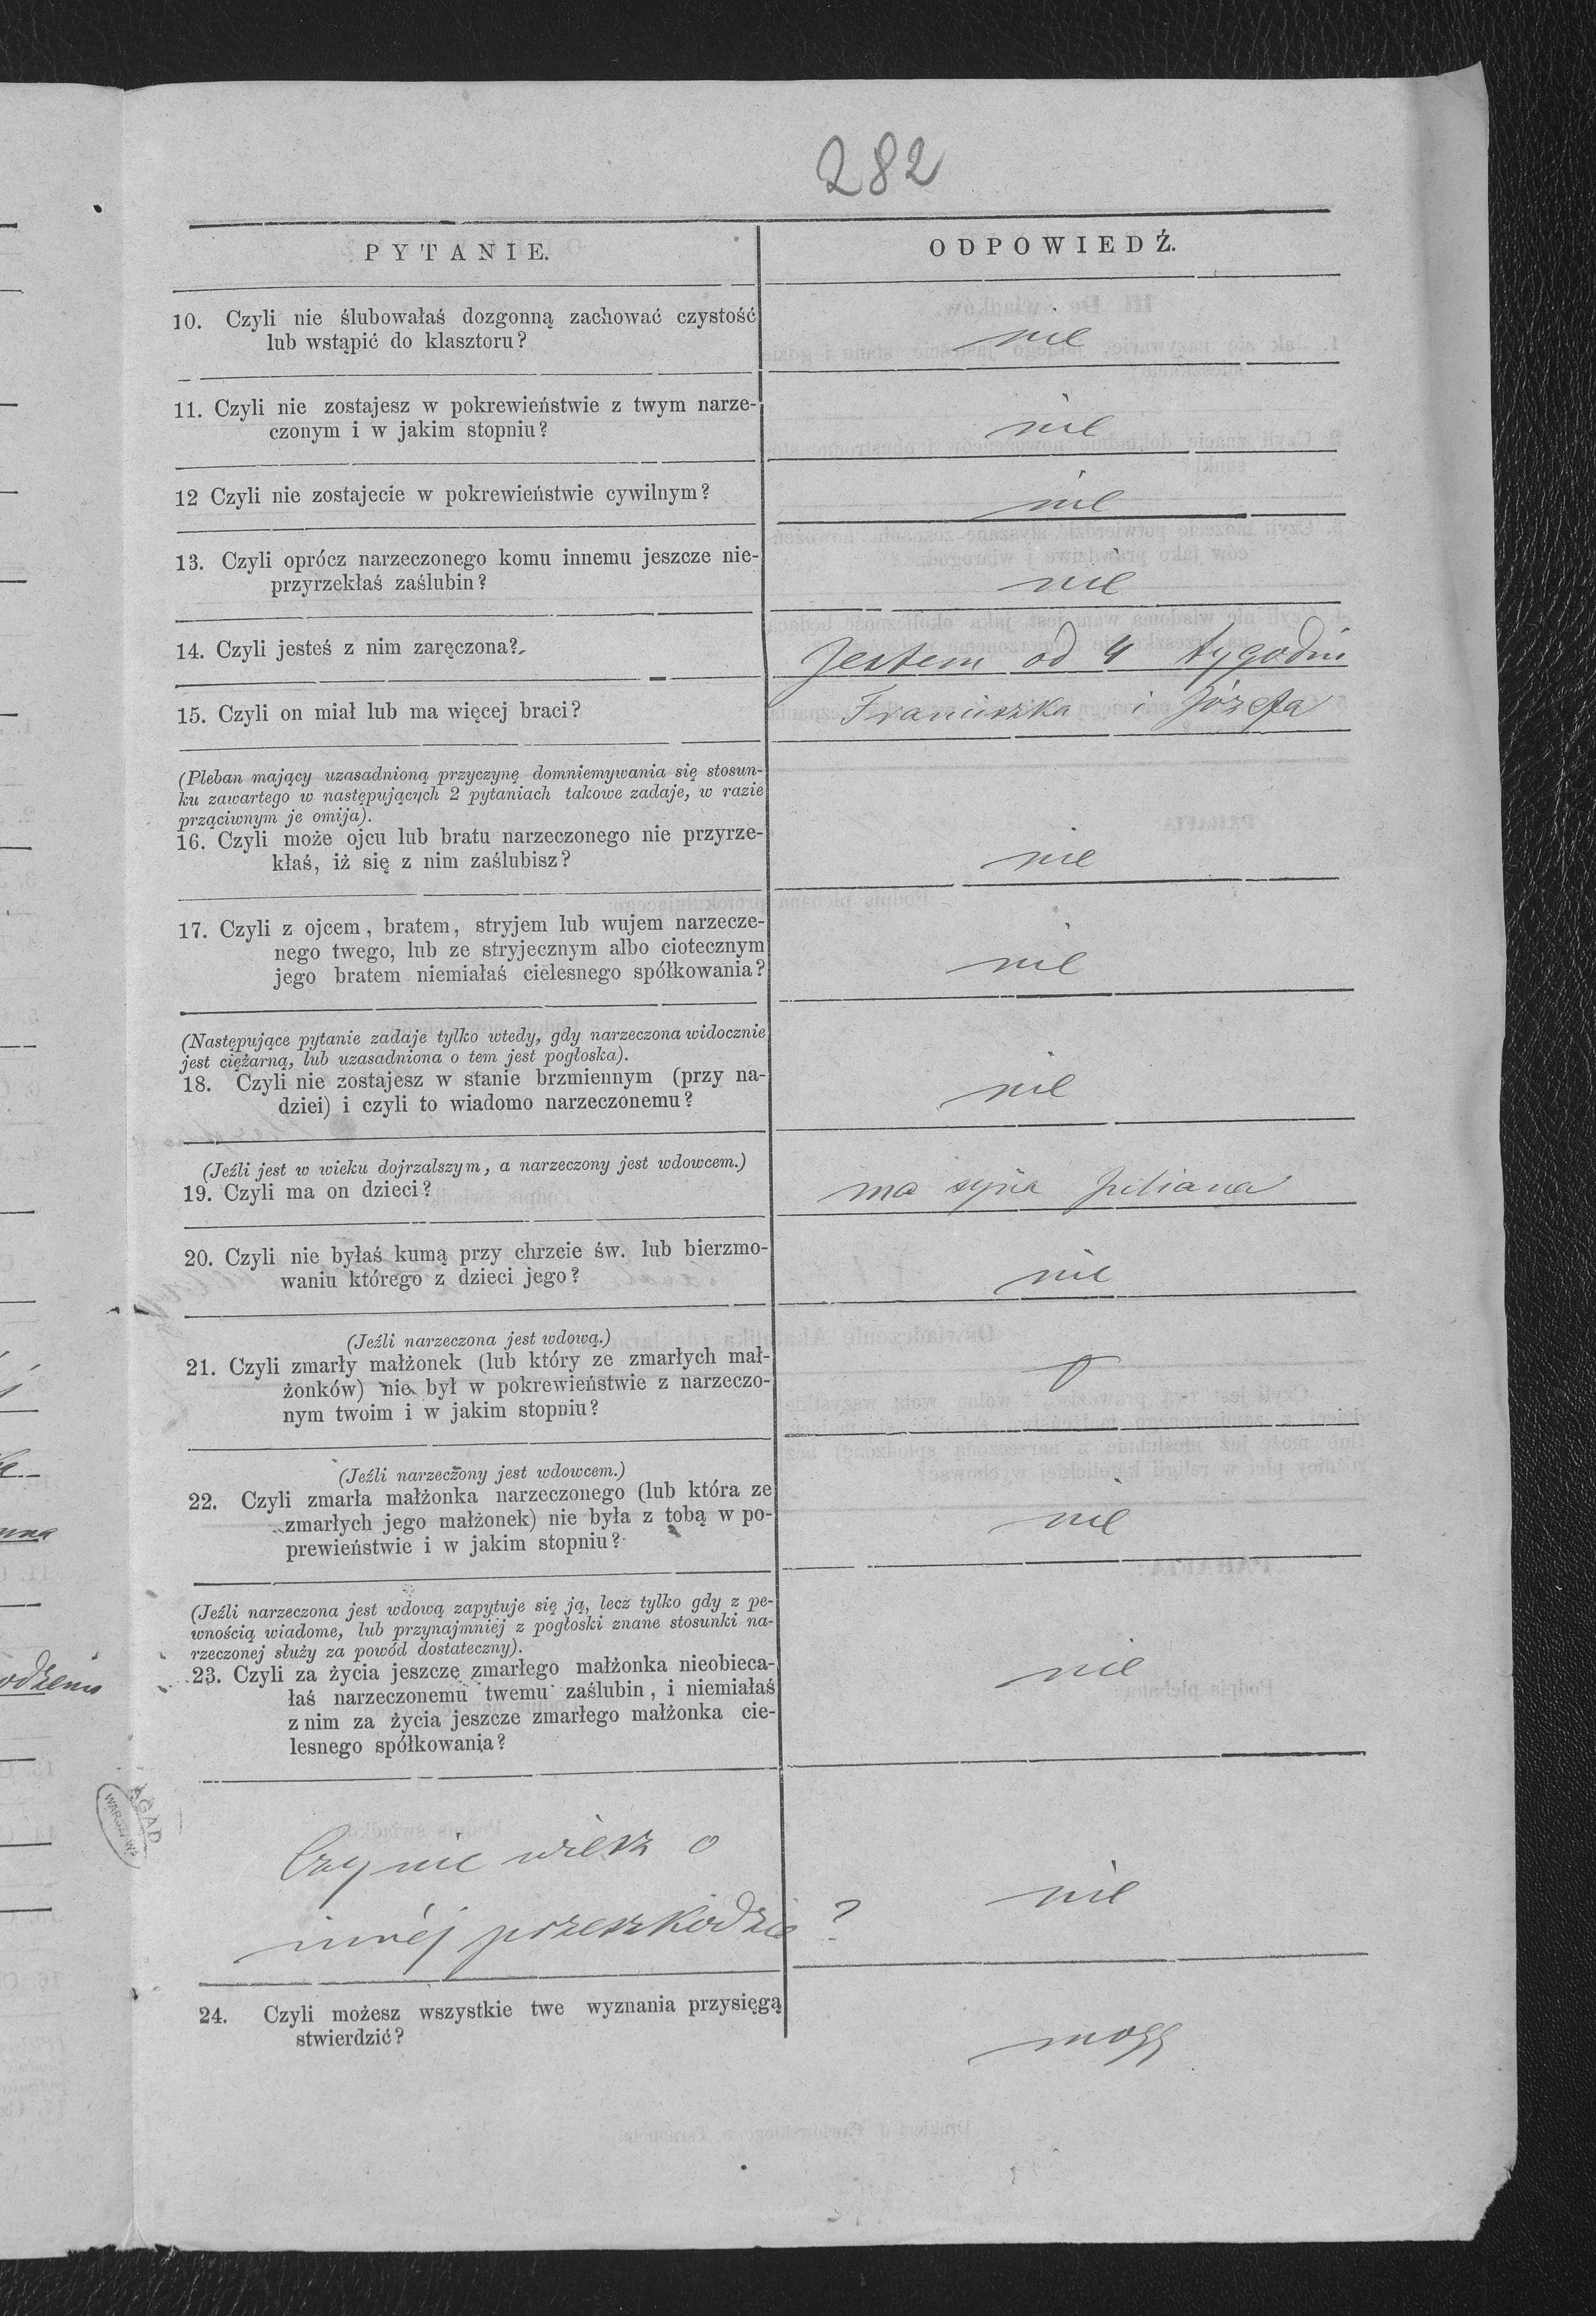 282
PYTANIE.
ODPOWIEDŹ.
10. Czyli nie ślubowałaś dozgonną zachować czystość
lub wstąpić do klasztoru?
nie
11. Czyli nie zostajesz w pokrewieństwie z twym narze-
czonym i w jakim stopniu?
nie
12 Czyli nie zostajecie w pokrewieństwie cywilnym?
nie
13. Czyli oprócz narzeczonego komu innemu jeszcze nie-
przyrzekłaś zaślubin?
nie
14. Czyli jesteś z nim zaręczona?
Jestem od 4 tygodni
15. Czyli on miał lub ma więcej braci?
Franciszka i Józefa
(Pleban mający uzasadnioną przyczynę domniemywania się stosun-
ku zawartego w następujących 2 pytaniach takowe zadaje, w razie
prząciwnym je omija).
16. Czyli może ojcu lub bratu narzeczonego nie przyrze-
kłaś, iż się z nim zaślubisz?
nie
17. Czyli z ojcem, bratem, stryjem lub wujem narzecze-
nego twego, lub ze stryjecznym albo ciotecznym
jego bratem niemiałaś cielesnego spółkowania?
nie
(Następujące pytanie zadaje tylko wtedy, gdy narzeczona widocznie
jest ciężarną, lub uzasadniona o tem jest pogłoska).
18. Czyli nie zostajesz w stanie brzmiennym (przy na-
dziei) i czyli to wiadomo narzeczonemu?
nie
(Jeźli jest w wieku dojrzalszym, a narzeczony jest wdowcem.)
19. Czyli ma on dzieci?
ma syna Juliana
20. Czyli nie byłaś kumą przy chrzcie św. lub bierzmo-
waniu którego z dzieci jego?
nie
(Jeźli narzeczona jest wdową.)
21. Czyli zmarły małżonek (lub który ze zmarłych mał-
żonków) nie był w pokrewieństwie z narzeczo-
nym twoim i w jakim stopniu?
(Jeźli narzeczony jest wdowcem.)
22. Czyli zmarła małżonka narzeczonego (lub która ze
zmarłych jego małżonek) nie była z tobą w po-
prewieństwie i w jakim stopniu?
nie
(Jeźli narzeczona jest wdową zapytuje się ją, lecz tylko gdy z pe-
wnością wiadome, lub przynajmniej z pogłoski znane stosunki na-
rzeczonej służy za powód dostateczny).
23. Czyli za życia jeszcze zmarłego małżonka nieobieca-
łaś narzeczonemu twemu zaślubin, i niemiałaś
z nim za życia jeszcze zmarłego małżonka cie-
lesnego spółkowania?
nie
Czy nie wiesz o
innéj przeszkodzie ?
nie
24. Czyli możesz wszystkie twe wyznania przysięgą
stwierdzić?
mogę
AGAD
WARSZAWA